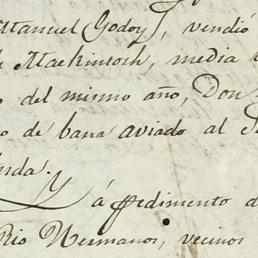 Manuel Godoy, vendió
Mackintosh, media
del mismo año, Don
de bara aviado al
Y á pedimento
Rio Hermanos, vecinos